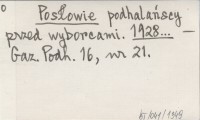 Posłowie podhalańscy
przed wyborcami. 1928... —
Gaz. Podh. 16, nr 21.